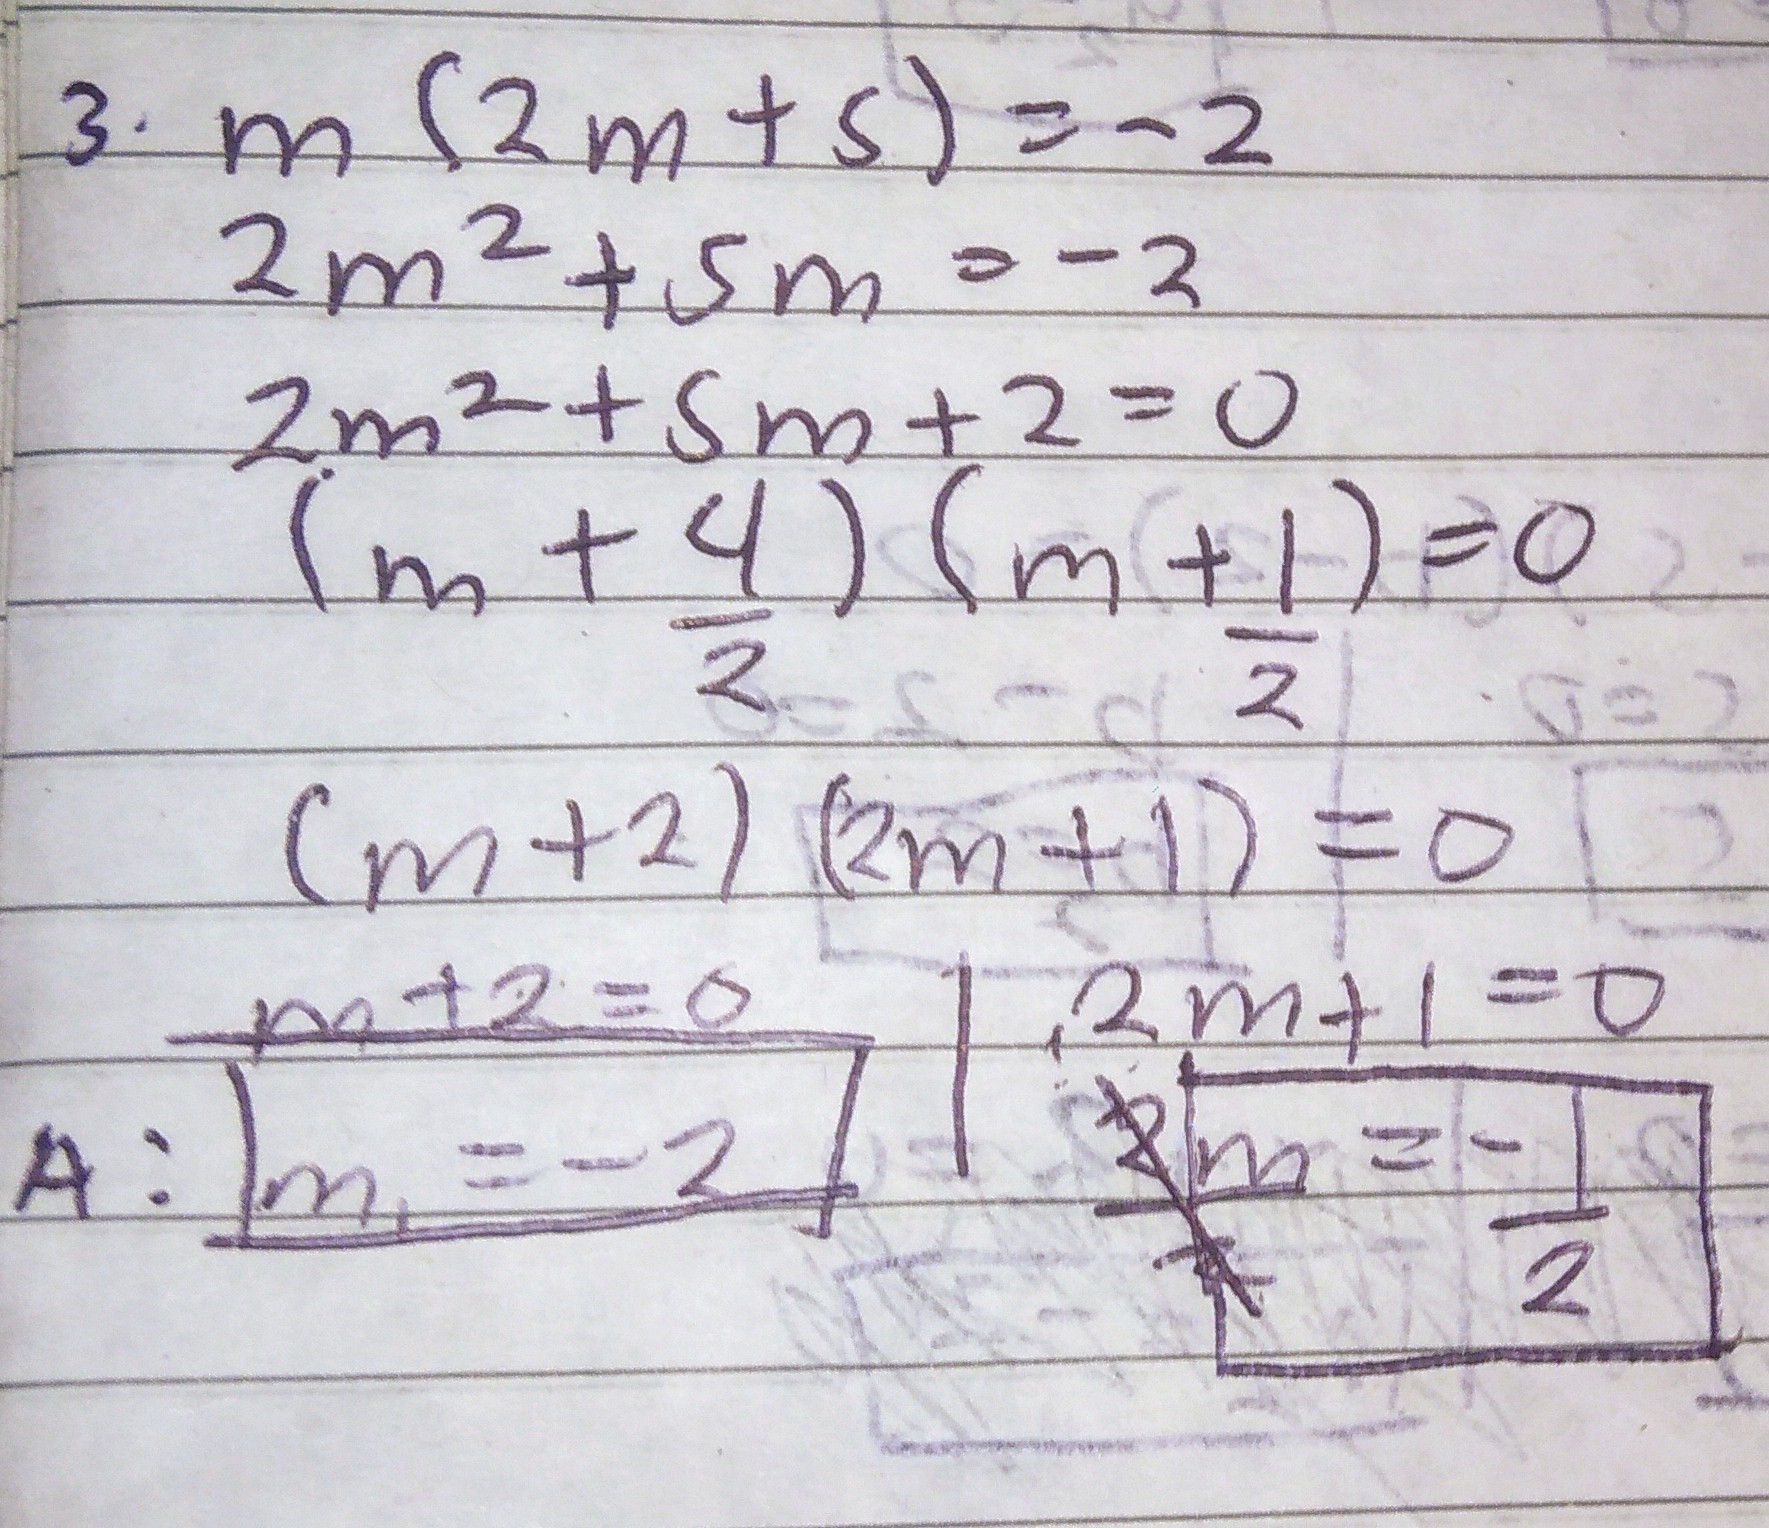 3. m (2m + 5) = -2
2m² + 5m = -2
2m² + 5m + 2 = 0
(m + 4/2) (m + 1/2) = 0
(m + 2) (2m + 1) = 0
m + 2 = 0 | 2m + 1 = 0
A: m₁ = -2 | m = -1/2